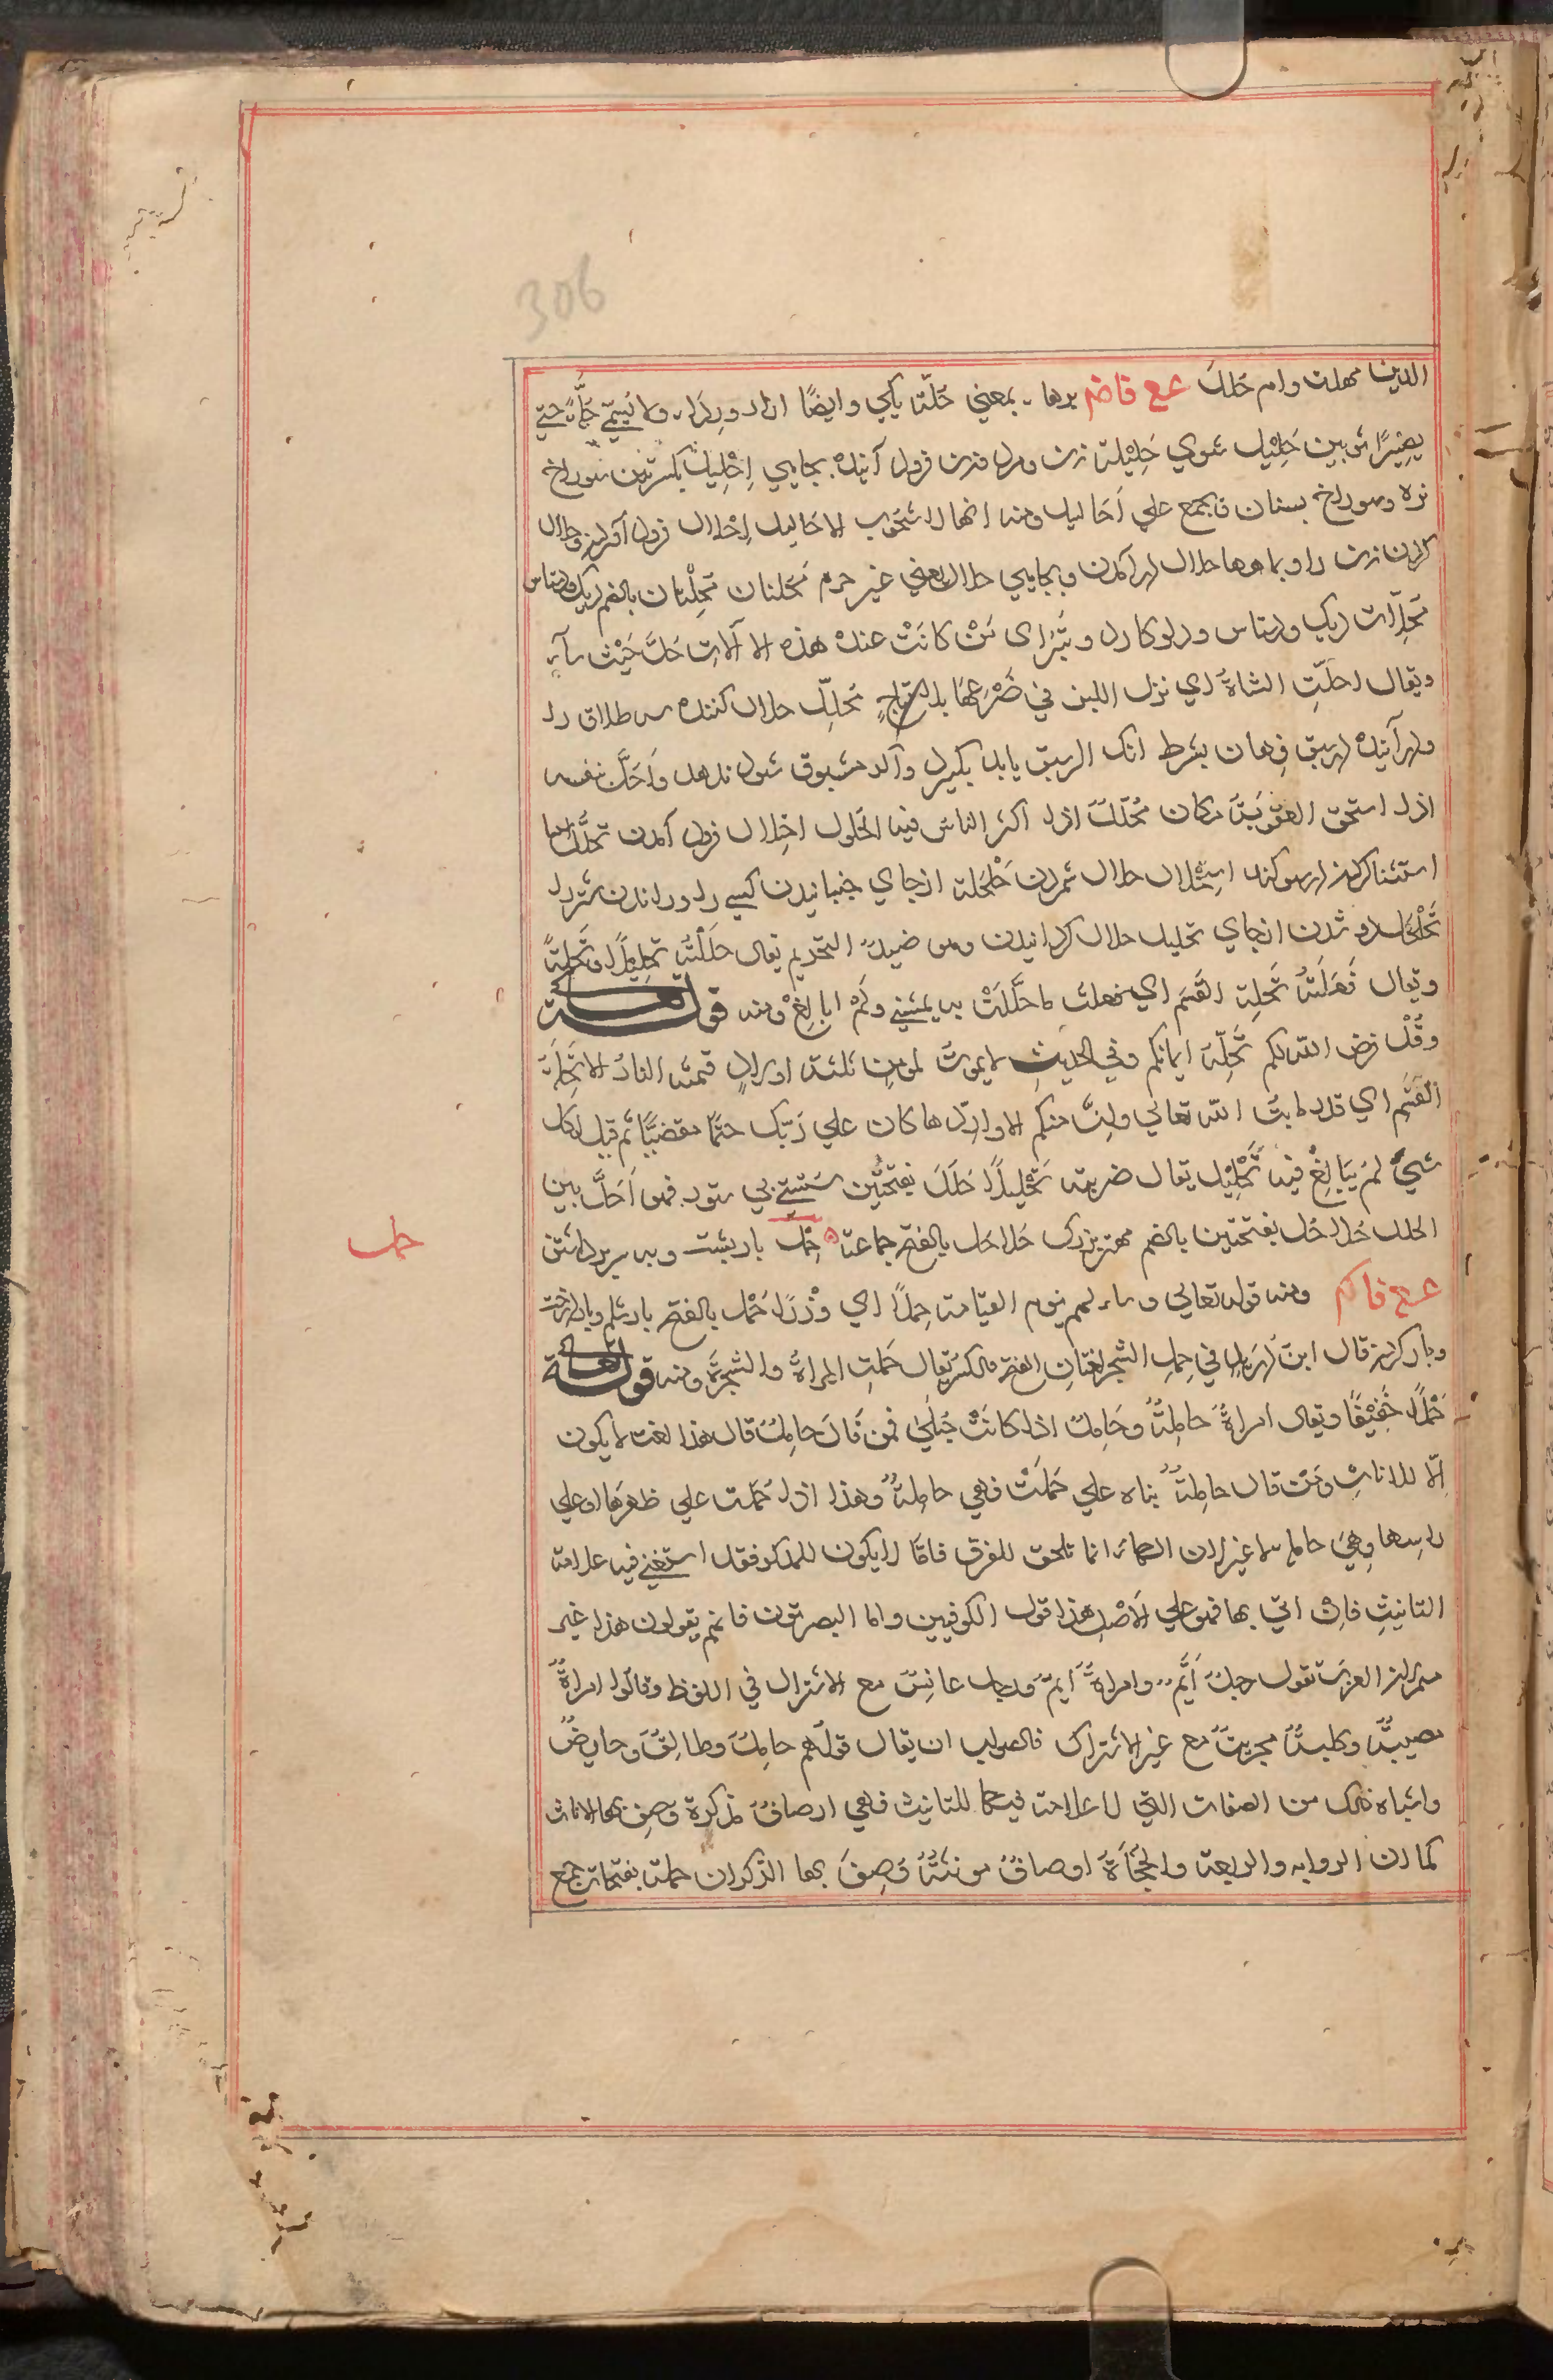 306
الدین مهلت وام حَلَلَ عع فاضم برها بمعني حُلّة یکي وایضًا ازار ورداء ولا یُسمّي حُلَّةً حتي
یصیرا ثوبین حَلِیْل شوي حَلِیْلة زن ومرد فرود آینده بجایي اِحْلِیل بکسرتین سوراخ
نره وسوراخ بستان فجمع علي اَحَالیل ومنه انها لاشخوب الاحالیل اِحْلال فرود آوردن وحلال
کردن زن را وبماهها حلال درآمدن وبجایي حلال یعني غیر حرم مُحلتان مُحِلّتان بالضم دیک ودستاس
مُحِلّات دیک ودستاس ودلو کارد وتبر اي مَنْ کانَتْ عنده هذه الآلات حَلَّ حَیْث شاء
ویقال احلّتِ الشاةُ اي نزل اللبن في ضَرْعِهَا بلا نِتاجٍ مُحلِّل حلال کننده سه طلاق را
ودرآینده دریق رهان بشرط آنک اگر سبق یابد بکیرد واگر مسبوق شود ندهد واَحَلَّ نفسه
اذا استحق العقوبة مکان مُحَلَّل اذا اکثر الناس فیه الحلول احتلال فرود آمدن تحلُّل
استثنا کردن در سوکند استحلال حلال شمردن حَلْحَلة از جاي جنبانیدن کسي را
تَحَلْحُل دور شدن از جاي تحلیل حلال کردانیدن وهو ضدّ التحریم یقال حَلَّلْتُه تحلِیلًا وتَحِلّةً
ویقال فَعَلَتُه تَحِلة القَسَم اي فعلت ما حَلَّلَتْ به یمیني وَلَمْ ابالِغْ ومنه قوله تعالی
وقَدْ فرض الله لکم تَحِلّة ایمانکم وفي الحدیثِ لایموتُ لمومنٍ ثلثة اولادٍ فتمسّه النارُ الا تَحِلّة
القَسَم اي قدر ما یبرّ الله تعالي واِنْ منکم الا واردها کان علي رَبّک حتمًا مقضیًّا ثم قیل لکل
شيءٍ لَمْ یُبَالِغْ فیه تَحْلِیْل یقال ضربته تَحْلِیلًا حَلَل بفتحتین سستي پي ستور فهو اَحَلُّ بین
الحلل حُلاحُل بفتحتین بالضم مهتر بزرک حَلاحَل بالفتح جماعة حِمْل بار پشت وبر سر برداشتن
حمل
عع فاکم ومنه قوله تعالي وساء لهم یوم القیامة حِملًا اي وِزْرًا حَمْل بالفتح بار شکم وبار درخت
وبار کردن قال ابن دُرَیدٍ في حِملِ الشجر لغتانِ الفتح والکسر یقال حَمَلتِ المراةُ والشجرةُ ومنه قوله تعالی
حَمْلًا خَفِیْفًا ویقال امراةٌ حَامِلَةٌ وحَامِلٌ اذا کانَتْ حُبلَي فمن قَالَ حامِلٌ قال هذا نعت لا یکون
اِلّا للاناثِ ومَنْ قال حامِلةٌ بناه علي حَمَلَتْ فهي حامِلةٌ وهذا اذا حَمَلت علي ظهرها او علي
راسها وهي حاملة لا غیر لان الهاء انما تلحق للفرق فاما لا یکون للمذکر فقد استغني فیه علامة
التانیثِ فان اتي بها فهو علي الاَصْلِ هذا قول الکوفیین واما البصریون فانهم یقولون هذا غیر
مستمر لان العرب تقول رجلٌ اَیِّمٌ وامراةٌ اَیِّمٌ ورجل عانِسٌ مع الاشتراک في اللفظ وقالوا امراةٌ
مصیبةٌ وکلبةٌ مجریةٌ مع غیر الاشتراک فالصواب ان یقال قولُهم حاملٌ وطالِقٌ وحایِضٌ
واشباه ذلک من الصفات التي لا علامة فیها للتانیث فهي اوصافٌ مذکرة وُصِفَ بها الاناث
کما ان الروایة والربعة والحُجَأَة اوصافٌ مونثةٌ وُصِفَ بها الذکران حملة بفتحات جمع